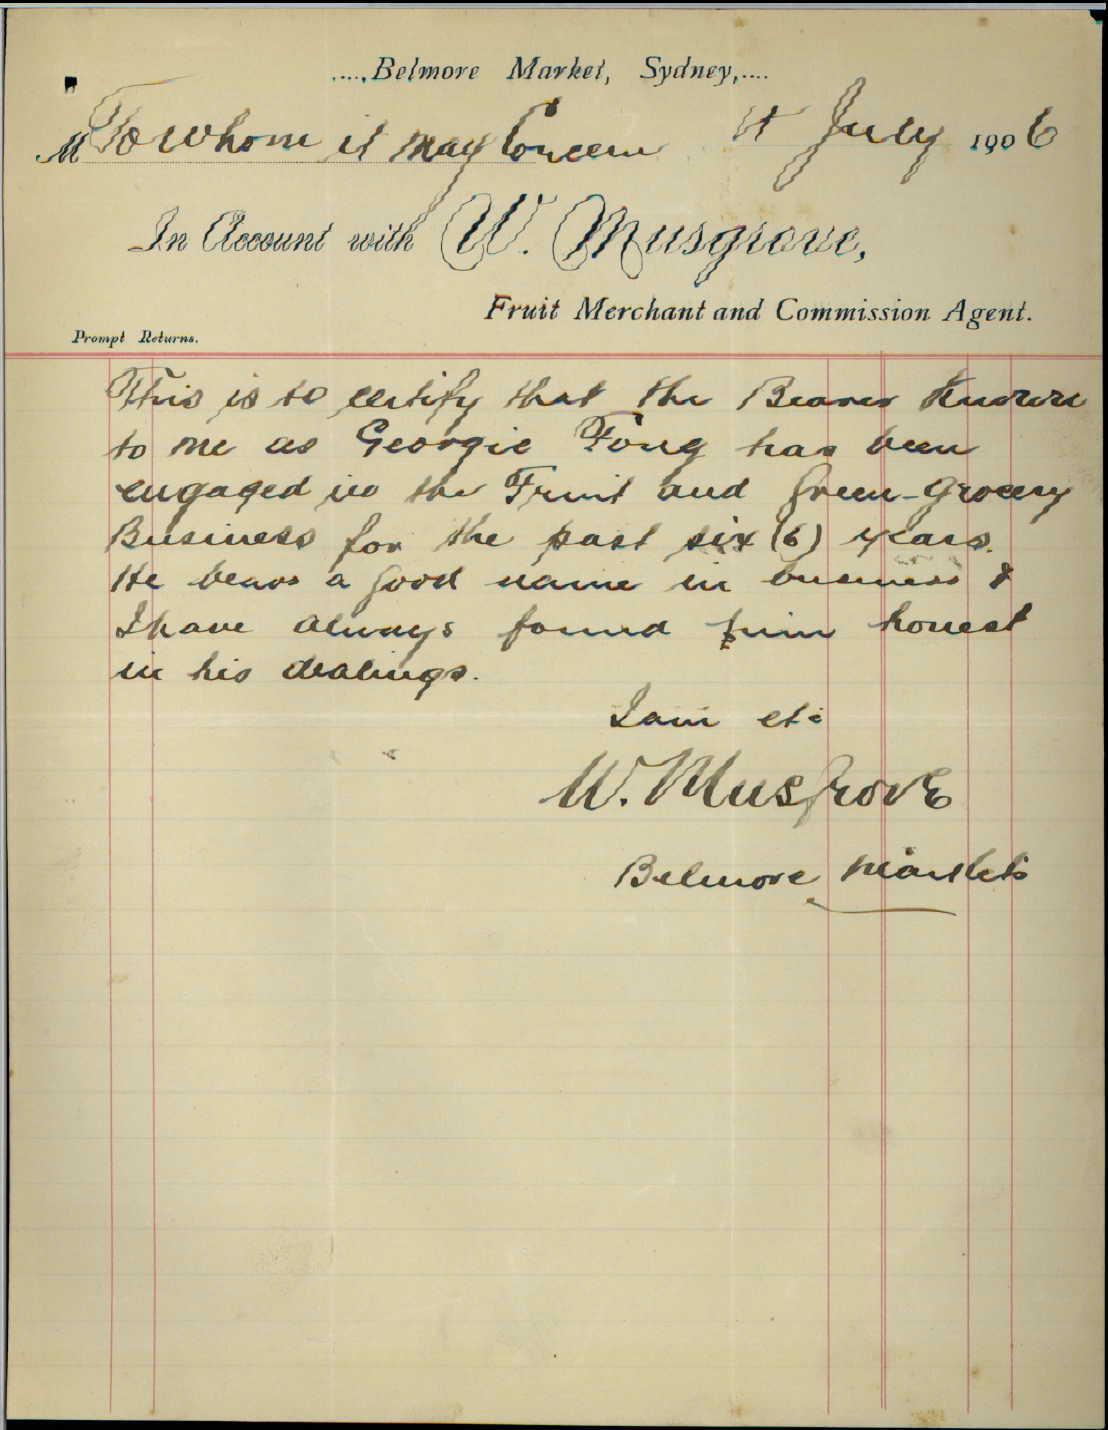 ....,Belmore Market, Sydney,....
M To whom it may Concern July 1906
In Account with W. Musgrove,
Fruit Merchant and Commission Agent.
Prompt Returns.
This is to certify that the Bearer Known
to me as Georgie Fong has been
engaged in the Fruit and Green-Grocery
Business for the past six (6) years.
He bears a good name in business &
I have always found him honest
in his dealings.
I am etc
W. Musgrove
Belmore Markets